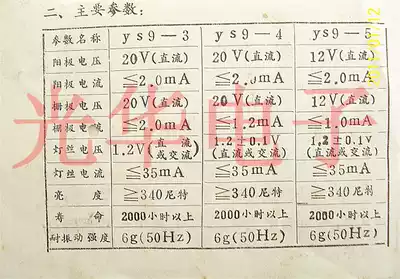 二、主要参数：
参数名称 ys9-3 ys9-4 ys9-5
阳极电压 20V(直流) 20V(直流) 12V(直流)
阳极电流 ≦2.0mA ≦2.0mA ≦2.0mA
栅极电压 20V(直流) 20V(直流) 12V(直流)
栅极电流 ≦2.0mA ≦1.2mA ≦1.0mA
灯丝电压 1.2V(直流或交流) 1.2±0.1V(直流或交流) 1.2±0.1V(直流或交流)
灯丝电流 ≦35mA ≦35mA ≦35mA
亮度 ≧340尼特 ≧340尼特 ≧340尼特
寿命 2000小时以上 2000小时以上 2000小时以上
耐振动强度 6g(50Hz) 6g(50Hz) 6g(50Hz)
光华电子